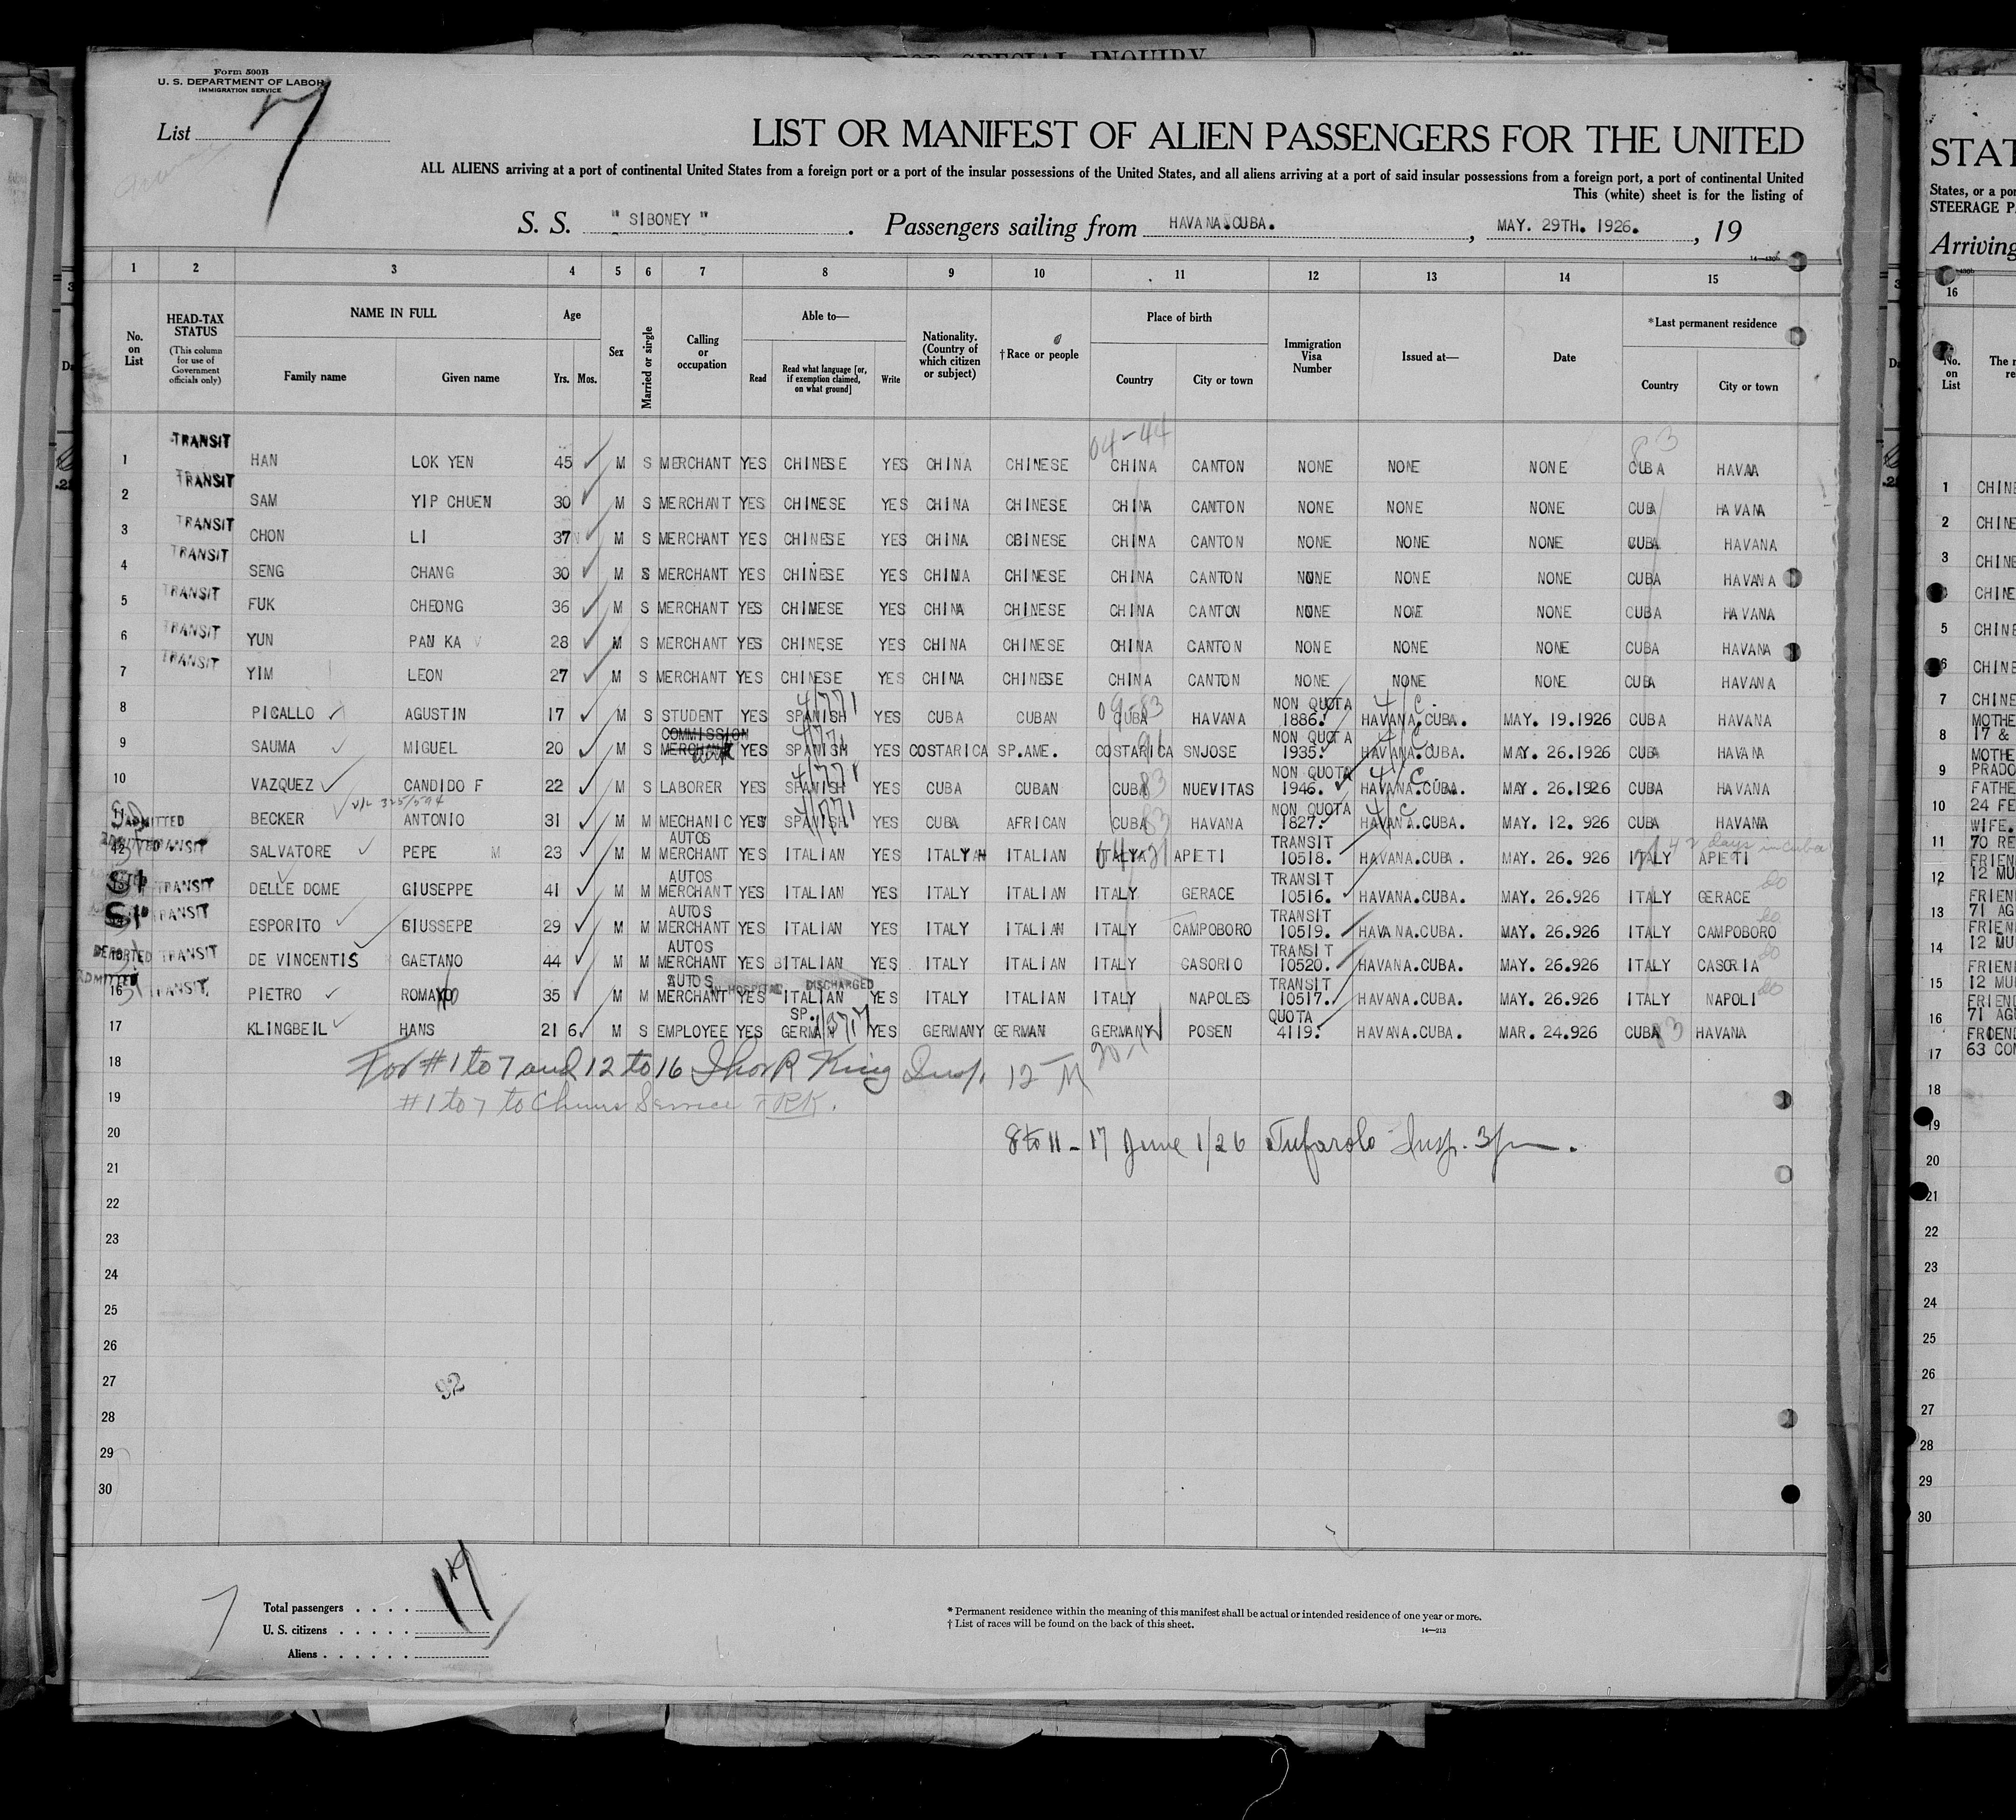 FOR SPECIAL INQUIRY
Form 500B
U. S. DEPARTMENT OF LABOR
IMMIGRATION SERVICE
List 7
LIST OR MANIFEST OF ALIEN PASSENGERS FOR THE UNITED
ALL ALIENS arriving at a port of continental United States from a foreign port or a port of the insular possessions of the United States, and all aliens arriving at a port of said insular possessions from a foreign port, a port of continental United
This (white) sheet is for the listing of
S. S. " SIBONEY " . Passengers sailing from HAVANA.CUBA. , MAY. 29TH. 1926. , 19
1 2 3 4 5 6 7 8 9 10 11 12 13 14 15
No. on List HEAD-TAX STATUS (This column for use of Government officials only) NAME IN FULL Family name Given name Age Yrs. Mos. Sex Married or single Calling or occupation Able to— Read Read what language [or, if exemption claimed, on what ground] Write Nationality. (Country of which citizen or subject) †Race or people Place of birth Country City or town Immigration Visa Number Issued at— Date *Last permanent residence Country City or town
04-44 83
1 TRANSIT HAN LOK YEN 45 M S MERCHANT YES CHINESE YES CHINA CHINESE CHINA CANTON NONE NONE NONE CUBA HAVAA
2 TRANSIT SAM YIP CHUEN 30 M S MERCHANT YES CHINESE YES CHINA CHINESE CHINA CANTON NONE NONE NONE CUBA HAVANA
3 TRANSIT CHON LI 37 M S MERCHANT YES CHINESE YES CHINA CBINESE CHINA CANTON NONE NONE NONE CUBA HAVANA
4 TRANSIT SENG CHANG 30 M S MERCHANT YES CHINESE YES CHINA CHINESE CHINA CANTON NONE NONE NONE CUBA HAVANA
5 TRANSIT FUK CHEONG 36 M S MERCHANT YES CHINESE YES CHINA CHINESE CHINA CANTON NONE NONE NONE CUBA HAVANA
6 TRANSIT YUN PAN KA 28 M S MERCHANT YES CHINESE YES CHINA CHINESE CHINA CANTON NONE NONE NONE CUBA HAVANA
7 TRANSIT YIM LEON 27 M S MERCHANT YES CHINESE YES CHINA CHINESE CHINA CANTON NONE NONE NONE CUBA HAVANA
8 PICALLO AGUSTIN 17 M S STUDENT YES SPANISH YES CUBA CUBAN CUBA HAVANA NON QUOTA 1886. HAVANA.CUBA. MAY. 19.1926 CUBA HAVANA
9 SAUMA MIGUEL 20 M S COMMISSION MERCHANT clerk YES SPANISH YES COSTARICA SP.AME. COSTARICA SNJOSE NON QUOTA 1935. HAVANA.CUBA. MAY. 26.1926 CUBA HAVANA
10 VAZQUEZ CANDIDO F 22 M S LABORER YES SPANISH YES CUBA CUBAN CUBA NUEVITAS NON QUOTA 1946. HAVANA.CUBA. MAY. 26.1926 CUBA HAVANA
11 ADMITTED BECKER ANTONIO 31 M M MECHANIC YES SPANISH YES CUBA AFRICAN CUBA HAVANA NON QUOTA 1827. HAVANA.CUBA. MAY. 12. 926 CUBA HAVANA
12 TRANSIT SALVATORE PEPE M 23 M M AUTOS MERCHANT YES ITALIAN YES ITALY ITALIAN ITALY APIETI TRANSIT 10518. HAVANA.CUBA. MAY. 26. 926 ITALY APIETI 42 days in cuba
SI TRANSIT DELLE DOME GIUSEPPE 41 M M AUTOS MERCHANT YES ITALIAN YES ITALY ITALIAN ITALY GERACE TRANSIT 10516. HAVANA.CUBA. MAY. 26.926 ITALY GERACE do
SI TRANSIT ESPORITO GIUSSEPE 29 M M AUTOS MERCHANT YES ITALIAN YES ITALY ITALIAN ITALY CAMPOBORO TRANSIT 10519. HAVANA.CUBA. MAY. 26.926 ITALY CAMPOBORO do
DEPORTED TRANSIT DE VINCENTIS GAETANO 44 M M AUTOS MERCHANT YES ITALIAN YES ITALY ITALIAN ITALY CASORIO TRANSIT 10520. HAVANA.CUBA. MAY. 26.926 ITALY CASORIA do
16 ADMITTED TRANSIT PIETRO ROMANO 35 M M AUTOS MERCHANT IN HOSPITAL DISCHARGED YES ITALIAN YES ITALY ITALIAN ITALY NAPOLES TRANSIT 10517. HAVANA.CUBA. MAY. 26.926 ITALY NAPOLI do
17 KLINGBEIL HANS 21 6 M S EMPLOYEE YES SP. GERMAN YES GERMANY GERMAN GERMANY POSEN QUOTA 4119. HAVANA.CUBA. MAR. 24.926 CUBA HAVANA
18 For #1 to 7 and 12 to 16 Thos R King Insp. 12 M
19 #1 to 7 to Chinese Service TRK.
20 8 to 11 - 17 June 1/26 Tufarolo Insp. 3pm.
21
22
23
24
25
26
27
92
28
29
30
7
Total passengers . . . . 17
U. S. citizens . . . . .
Aliens . . . . . .
* Permanent residence within the meaning of this manifest shall be actual or intended residence of one year or more.
† List of races will be found on the back of this sheet.
14—213
STAT
States, or a por
STEERAGE P
Arriving
16
No. on List
1 CHINE
2 CHINE
3 CHINE
CHINE
5 CHINE
6 CHINE
7 CHINE
8 MOTHE 17 &
9 MOTHE PRADO
10 FATHE 24 FE
11 WIFE. 70 RE
12 FRIEN 12 MU
13 FRIEN 71 AG
14 FRIEN 12 MU
15 FRIEN 12 MU
16 FRIEN 71 AG
17 FRIEND 63 CO
18
19
20
21
22
23
24
25
26
27
28
29
30